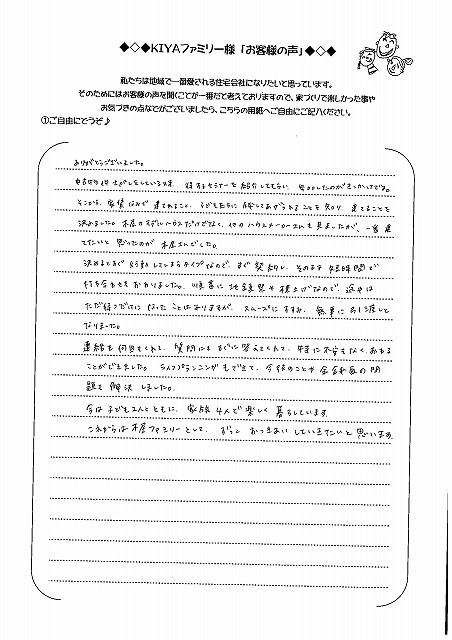 ◆◇◆KIYAファミリー様「お客様の声」◆◇◆
私たちは地域で一番愛される住宅会社になりたいと思っています。
そのためにはお客様の声を聞くことが一番だと考えておりますので、家づくりで楽しかった事や
お気づきの点などがございましたら、こちらの用紙へご自由にご記入ください。
①ご自由にどうぞ♪
ありがとうございました。
土地を紹介してもらい、参加したのがきっかけです。
そこから、家賃なみで建てれること、子ども達に残してあげられることを知り、建てることを
決めました。木屋のモデルハウスだけでなく、他のハウスメーカーさんも見ましたが、一番建
てたいと思ったのが木屋さんでした。
決めるとすぐ行動してしまうタイプなので、すぐ契約し、そのまま短時間で
打ち合わせもおわりました。順番に地鎮祭や棟上げなので、途中は
ただ待つだけになったことは有りますが、スムーズにすすみ、無事にお引き渡しと
なりました。
連絡も何回もくれて、質問にもすぐに答えてくれて、特に不安もなくあれる
ことができました。ライフプランニングもできて、今後のことやお金の問
題も解決しました。
今は子ども2人とともに、家族4人で楽しく暮らしています。
これからは木屋ファミリーとして、ずっとおつきあいしていきたいと思います。